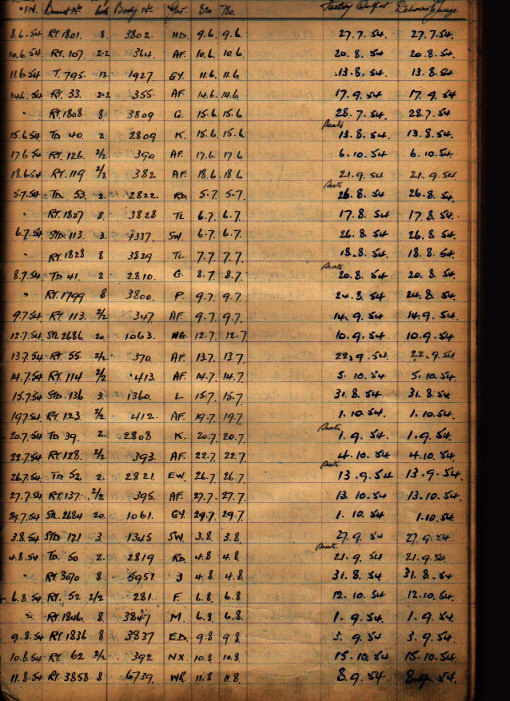 IN. Body No. Gar.
8.6.54 RT.1801. 8. 3802. HD. 9.6. 9.6. 27.7.54. 27.7.54.
10.6.54 RT.107. 2/2 364. AF. 10.6. 10.6. 20.8.54. 20.8.54.
11.6.54 T.795. 13. 1927 GY. 11.6. 11.6. 13.8.54. 13.8.54
14.6.54 RT.33. 2/2 355. AF 14.6. 14.6. 17.9.54 17.9.54
" RT.1808 8 3809 G. 15.6 15.6. 28.7.54. 28.7.54
15.6.54 TD 40. 2. 2809 K. 15.6. 15.6. 13.8.54. 13.8.54.
17.6.54 RT.126. 2/2 390 AF. 17.6 17.6 6.10.54. 6.10.54.
18.6.54 RT.119 2/2 382 AF. 18.6 18.6 21.9.54 21.9.54
5.7.54 TD. 53. 2. 2822. RD. 5.7. 5.7. 26.8.54 26.8.54
" RT.1827 8 3828 TL 6.7. 6.7. 17.8.54 17.8.54.
6.7.54 STD.113. 3. 1337. SW. 6.7. 6.7. 26.8.54 26.8.54
" RT.1828 8 3829 TL. 7.7. 7.7. 18.8.54 18.8.54.
8.7.54 TD 41. 2. 2810. G. 8.7 8.7. 20.8.54. 20.8.54
" RT.1799 8 3800. P. 9.7. 9.7. 24.8.54 24.8.54
9.7.54 RT.113. 2/2 347 AF. 9.7. 9.7. 14.9.54 14.9.54
12.7.54 SRL.2686 20 1063. 12.7. 12.7 10.9.54 10.9.54
13.7.54 RT 55. 2/2 370. AF 13.7. 13.7 22.9.54 22.9.54
14.7.54 RT.114 2/2 413. AF 14.7. 14.7 5.10.54 5.10.54
15.7.54 STD.136 3 1360. L 15.7. 15.7 31.8.54 31.8.54
19.7.54 RT.123. 2/2 412. AF. 19.7. 19.7 1.10.54. 1.10.54.
20.7.54 TD 39. 2. 2808 K. 20.7 20.7 1.9.54. 1.9.54
22.7.54 RT.128. 2/2 393. AF. 22.7. 22.7 4.10.54 4.10.54
26.7.54 TD 52. 2. 2821 EW. 26.7 26.7 13.9.54 13.9.54
27.7.54 RT.137. 2/2 395. AF. 27.7. 27.7 13.10.54 13.10.54
29.7.54 SRL.2684 20 1061. GY 29.7 29.7. 1.10.54 1.10.54.
3.8.54 STD 121 3 1345 SW. 3.8. 3.8 27.9.54 27.9.54
4.8.54 TD. 50 2. 2819 RD. 4.8 4.8 21.9.54. 21.9.54
" RT.3070 8 5951 J 4.8 4.8. 31.8.54 31.8.54
6.8.54 RT. 52 2/2 281. F. 6.8 6.8 12.10.54 12.10.54
" RT.1846. 8 3847 M. 6.8 6.8. 1.9.54 1.9.54
9.8.54 RT.1836 8 3837 ED. 9.8 9.8 3.9.54 3.9.54
10.8.54 RT 62 2/2 392 NX. 10.8 10.8 15.10.54 15.10.54
11.8.54 RT.3858 8 6739. WR. 11.8 11.8. 8.9.54 8.9.54